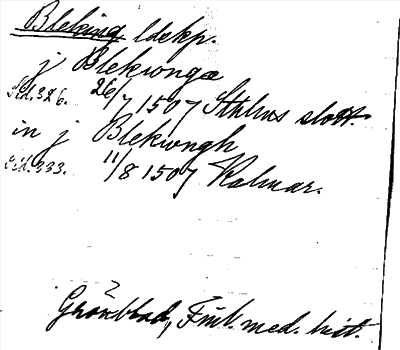 Bleking ldskp.
j Blekionga
Sid. 326. 26/7 1507 Sthlms slott.
in j Blekiongh
Sid. 333. 11/8 1507 Kalmar.
Grönblad, Finl. med. hist.